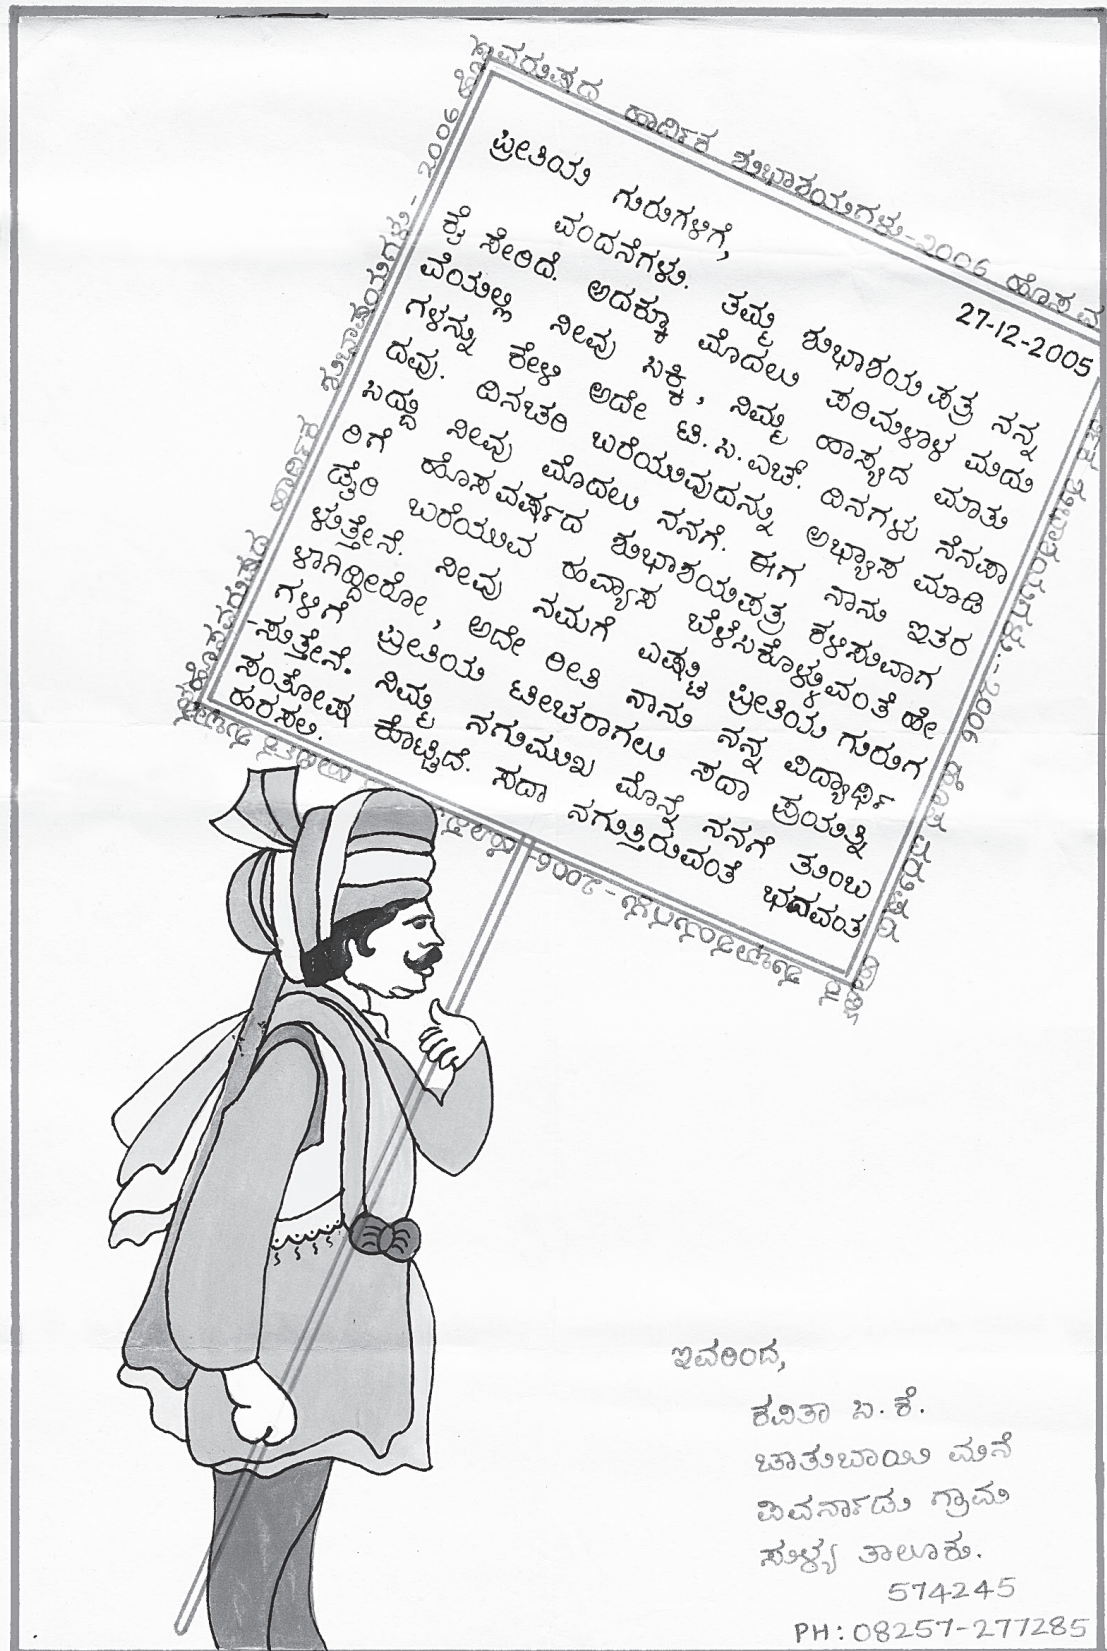 ಹೊಸವರುಷದ ಹಾರ್ದಿಕ ಶುಭಾಶಯಗಳು-2006
27-12-2005
ಪ್ರೀತಿಯ ಗುರುಗಳಿಗೆ,
ವಂದನೆಗಳು. ತಮ್ಮ ಶುಭಾಶಯ ಪತ್ರ ನನ್ನ
ಕೈ ಸೇರಿದೆ. ಅದಕ್ಕೂ ಮೊದಲು ಪರಿಮಳಾಳ ಮದು
ವೆಯಲ್ಲಿ ನೀವು ಸಿಕ್ಕಿ, ನಿಮ್ಮ ಹಾಸ್ಯದ ಮಾತು
ಗಳನ್ನು ಕೇಳಿ ಅದೇ ಟಿ.ಸಿ.ಎಚ್. ದಿನಗಳು ನೆನಪಾ
ದವು. ದಿನಚರಿ ಬರೆಯುವುದನ್ನು ಅಭ್ಯಾಸ ಮಾಡಿ
ಸಿದ್ದು ನೀವು ಮೊದಲು ನನಗೆ. ಈಗ ನಾನು ಇತರ
ರಿಗೆ ಹೊಸವರ್ಷದ ಶುಭಾಶಯಪತ್ರ ಕಳಿಸುವಾಗ
ಡೈರಿ ಬರೆಯುವ ಹವ್ಯಾಸ ಬೆಳೆಸಿಕೊಳ್ಳುವಂತೆ ಹೇ
ಳುತ್ತೇನೆ. ನೀವು ನಮಗೆ ಎಷ್ಟು ಪ್ರೀತಿಯ ಗುರುಗ
ಳಾಗಿದ್ದೀರೋ, ಅದೇ ರೀತಿ ನಾನು ನನ್ನ ವಿದ್ಯಾರ್ಥಿ
ಗಳಿಗೆ ಪ್ರೀತಿಯ ಟೀಚರಾಗಲು ಸದಾ ಪ್ರಯತ್ನಿ
-ಸುತ್ತೇನೆ. ನಿಮ್ಮ ನಗುಮುಖ ಮೊನ್ನೆ ನನಗೆ ತುಂಬು
ಸಂತೋಷ ಕೊಟ್ಟಿದೆ. ಸದಾ ನಗುತ್ತಿರುವಂತೆ ಭಗವಂತ
ಹರಸಲಿ.
ಇವರಿಂದ,
ಕವಿತಾ ಬಿ.ಕೆ.
ಚಾತುಬಾಯಿ ಮನೆ
ಐವರ್ನಾಡು ಗ್ರಾಮ
ಸುಳ್ಯ ತಾಲೂಕು.
574245
PH: 08257-277285